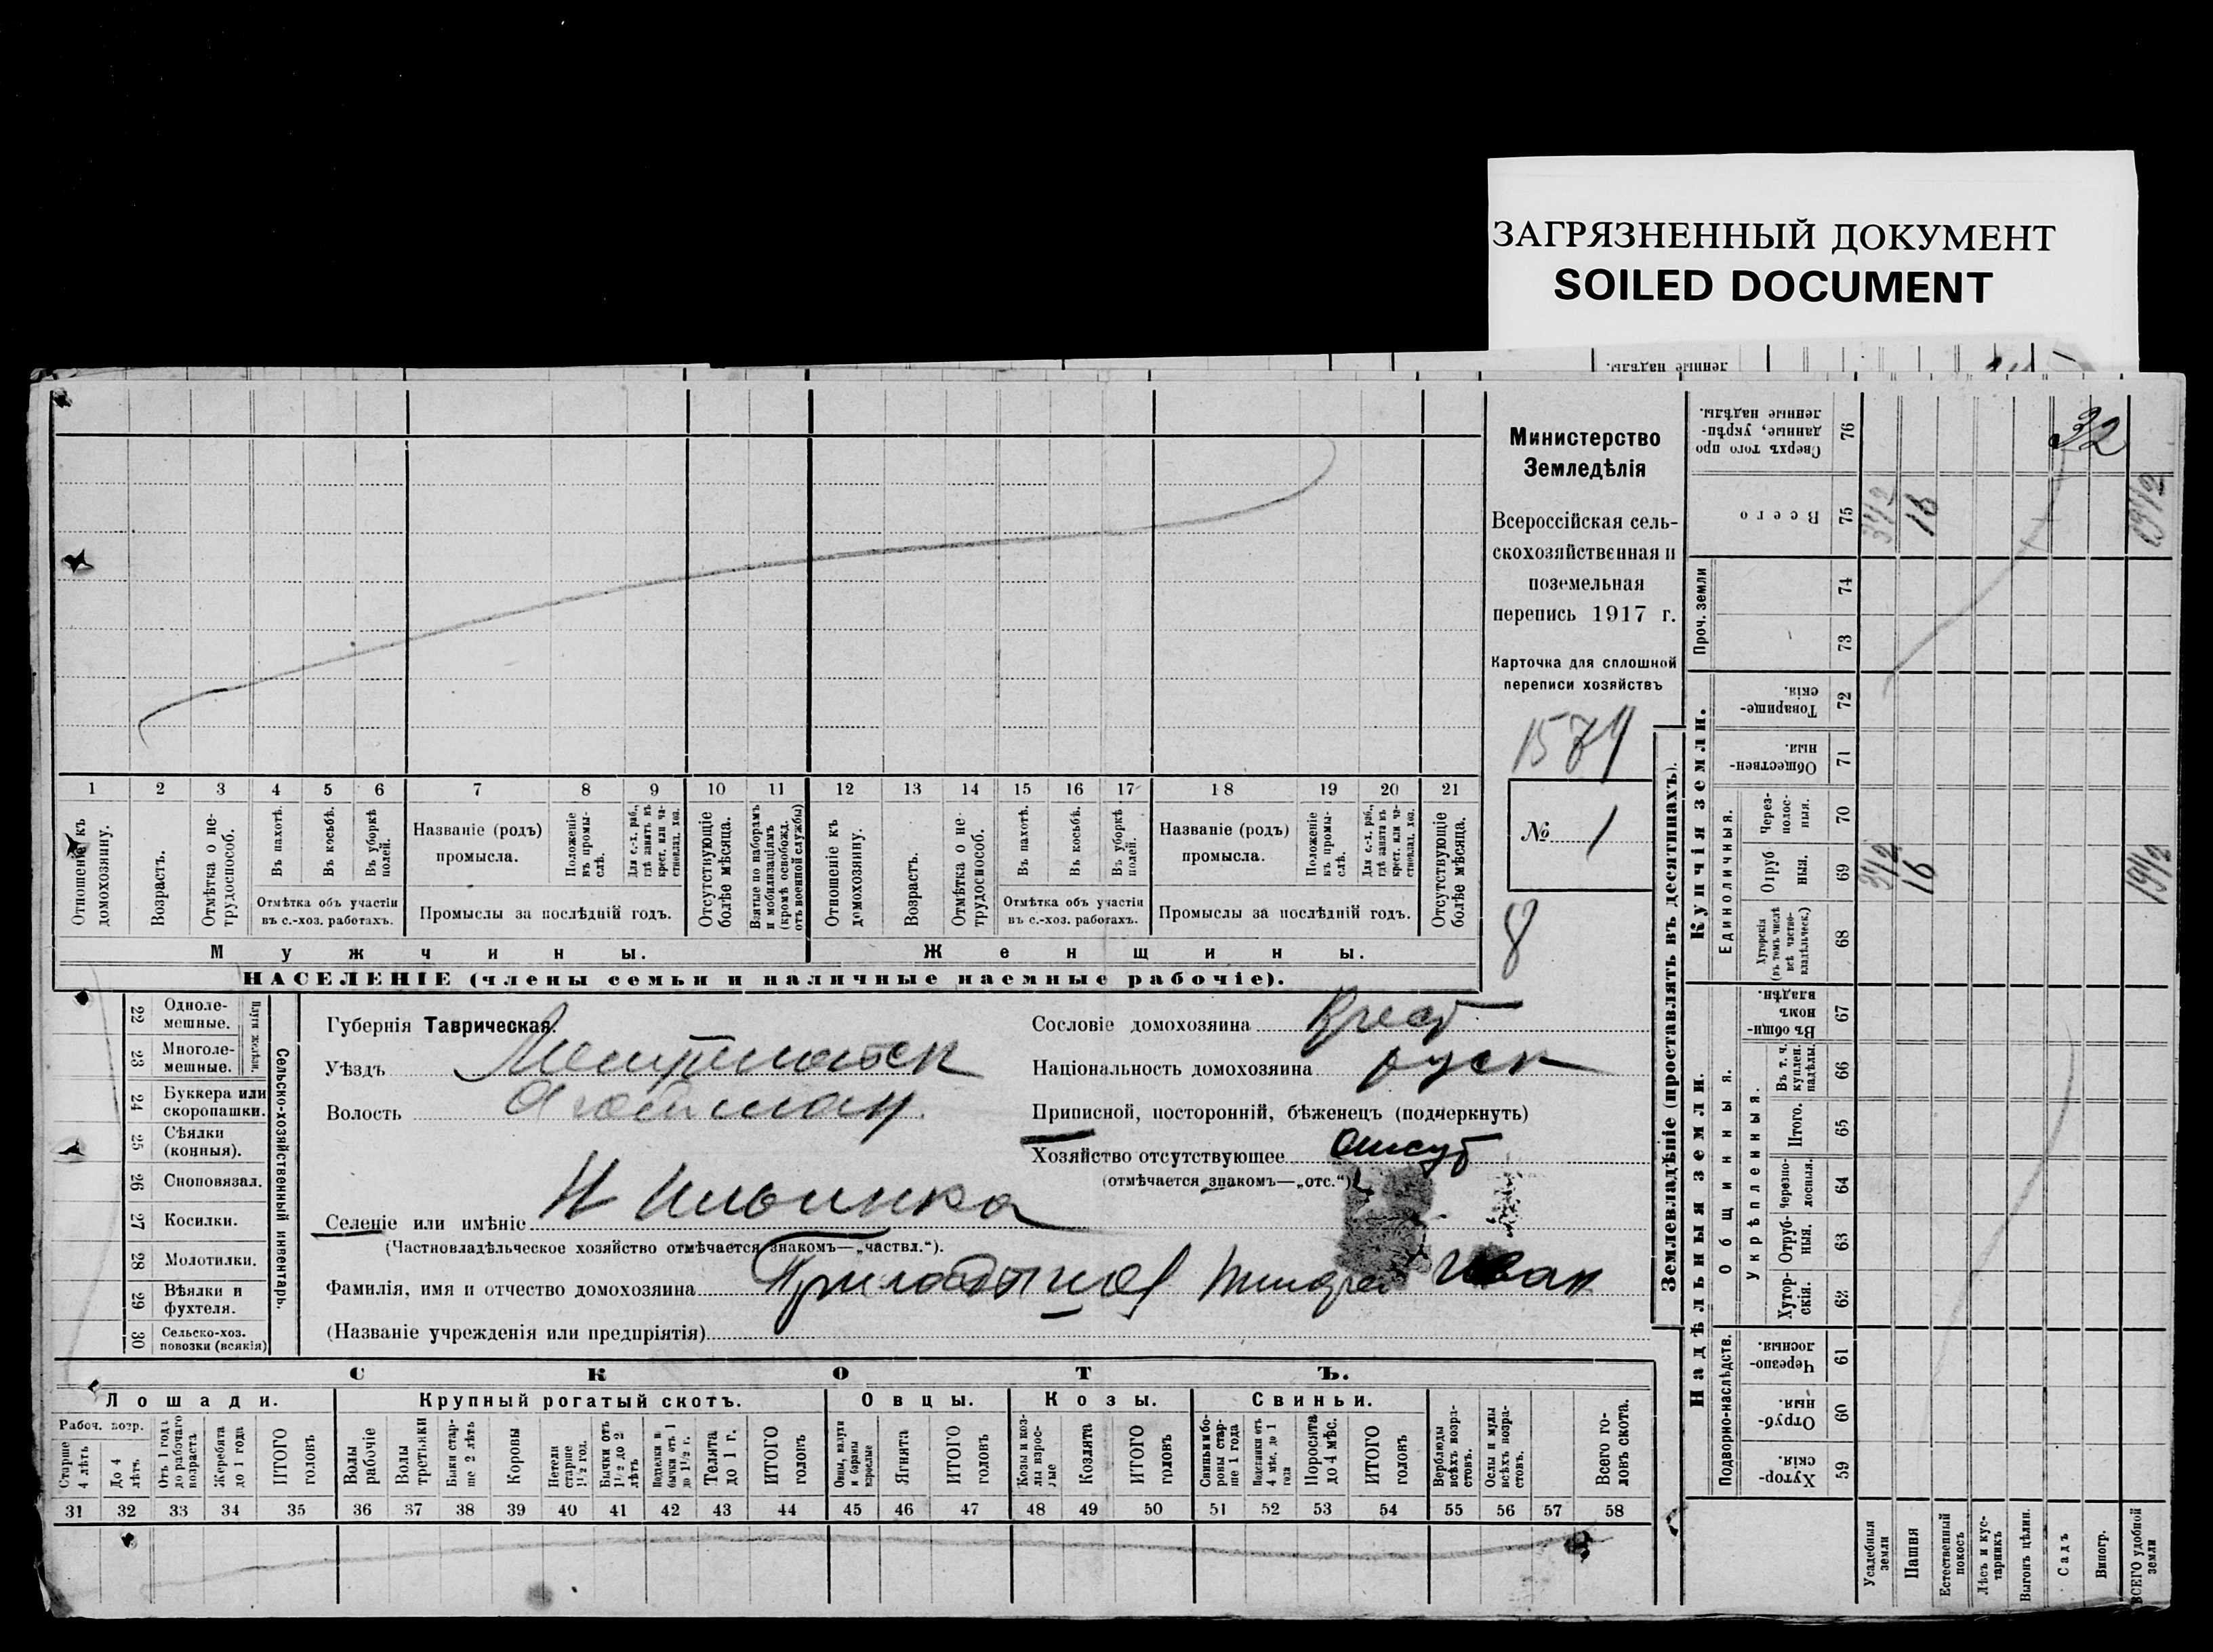 ЗАГРЯЗНЕННЫЙ ДОКУМЕНТ
SOILED DOCUMENT
Министерство
Земледѣлія
Всероссійская сель-
скохозяйственная и
поземельная
перепись 1917 г.
Карточка для сплошной
переписи хозяйствъ
1574
№ 1
8
1 2 3 4 5 6 7 8 9 10 11 12 13 14 15 16 17 18 19 20 21
Отношеніе къ домохозяину.
Возрастъ.
Отмѣтка о не-трудоспособ.
Въ пахотѣ.
Въ косьбѣ.
Въ уборкѣ полей.
Отмѣтка объ участіи
въ с.-хоз. работахъ.
Названіе (родъ)
промысла.
Положеніе въ промы-слѣ.
Для с.-х. раб., гдѣ занятъ въ крест. или ча-стновлад. хоз.
Промыслы за послѣдній годъ.
Отсутствующіе болѣе мѣсяца.
Взятые по наборамъ и мобилизаціямъ (кромѣ освобожд. отъ военной службы)
Отношеніе къ домохозяину.
Возрастъ.
Отмѣтка о не-трудоспособ.
Въ пахотѣ.
Въ косьбѣ.
Въ уборкѣ полей.
Отмѣтка объ участіи
въ с.-хоз. работахъ.
Названіе (родъ)
промысла.
Положеніе въ промы-слѣ.
Для с.-х. раб., гдѣ занята въ крест. или ча-стновлад. хоз.
Промыслы за послѣдній годъ.
Отсутствующіе болѣе мѣсяца.
Мужчины. Женщины.
НАСЕЛЕНІЕ (члены семьи и наличные наемные рабочіе).
22 Одноле-мешные.
23 Многоле-мешные.
Плуги желѣзн.
24 Буккера или скоропашки.
25 Сѣялки (конныя).
26 Сноповязал.
27 Косилки.
28 Молотилки.
29 Вѣялки и фухтеля.
30 Сельско-хоз. повозки (всякія)
Сельско-хозяйственный инвентарь.
Губернія Таврическая.
Уѣздъ Мелитопольск
Волость
Селеніе или имѣніе Н Ильинка
(Частновладѣльческое хозяйство отмѣчается знакомъ—„частвл.“).
Фамилія, имя и отчество домохозяина Иван
(Названіе учрежденія или предпріятія)
Сословіе домохозяина Крест
Національность домохозяина руск
Приписной, посторонній, бѣженецъ (подчеркнуть)
Хозяйство отсутствующее отсут
(отмѣчается знакомъ—„отс.“)
СКОТЪ.
Лошади. Крупный рогатый скотъ. Овцы. Козы. Свиньи.
Рабоч. возр.
Старше 4 лѣтъ
До 4 лѣтъ
Отъ 1 года до рабочаго возраста
Жеребята до 1 года
ИТОГО головъ
Волы рабочіе
Волы третьяки
Быки стар-ше 2 лѣтъ
Коровы
Нетели старше 1½ год.
Бычки отъ 1½ до 2 лѣтъ
Подтелки и бычки отъ 1 до 1½ г.
Телята до 1 г.
ИТОГО головъ
Овцы, валухи и бараны взрослые
Ягнята
ИТОГО головъ
Козы и коз-лы взрос-лые
Козлята
ИТОГО головъ
Свиньи и бо-ровы стар-ше 1 года
Подсвинки отъ 4 мѣс. до 1 года
Поросята до 4 мѣс.
ИТОГО головъ
Верблюды всѣхъ возра-стовъ.
Ослы и мулы всѣхъ возра-стовъ.
Всего го-ловъ скота.
31 32 33 34 35 36 37 38 39 40 41 42 43 44 45 46 47 48 49 50 51 52 53 54 55 56 57 58
Землевладѣніе (проставлять въ десятинахъ).
Надѣльныя земли.
Купчія земли.
Проч. земли
Подворно-наслѣдств.
Общинныя.
Укрѣпленныя.
Единоличныя.
Хутор-скія. 59
Отруб-ныя. 60
Черезпо-лосныя. 61
Хутор-скія. 62
Отруб-ныя. 63
Черезпо-лосныя. 64
Итого. 65
Въ т. ч. куплен. надѣлы. 66
Въ общин-номъ владѣн. 67
Хуторскія (въ томъ числѣ всѣ частно-владѣльческ.) 68
Отруб ныя. 69
Через-полос-ныя. 70
Обществен-ныя. 71
Товарище-скія. 72
73
74
Всего 75
Сверхъ того про данные, укрѣп-ленные надѣлы. 76
Усадебныя земли
Пашня 16 16
Естественный покосъ
Лѣсъ и кус-тарникъ
Выгонъ цѣлин.
Садъ
Виногр.
ВСЕГО удобной земли 19½ 19½
32
ленные надѣлы.